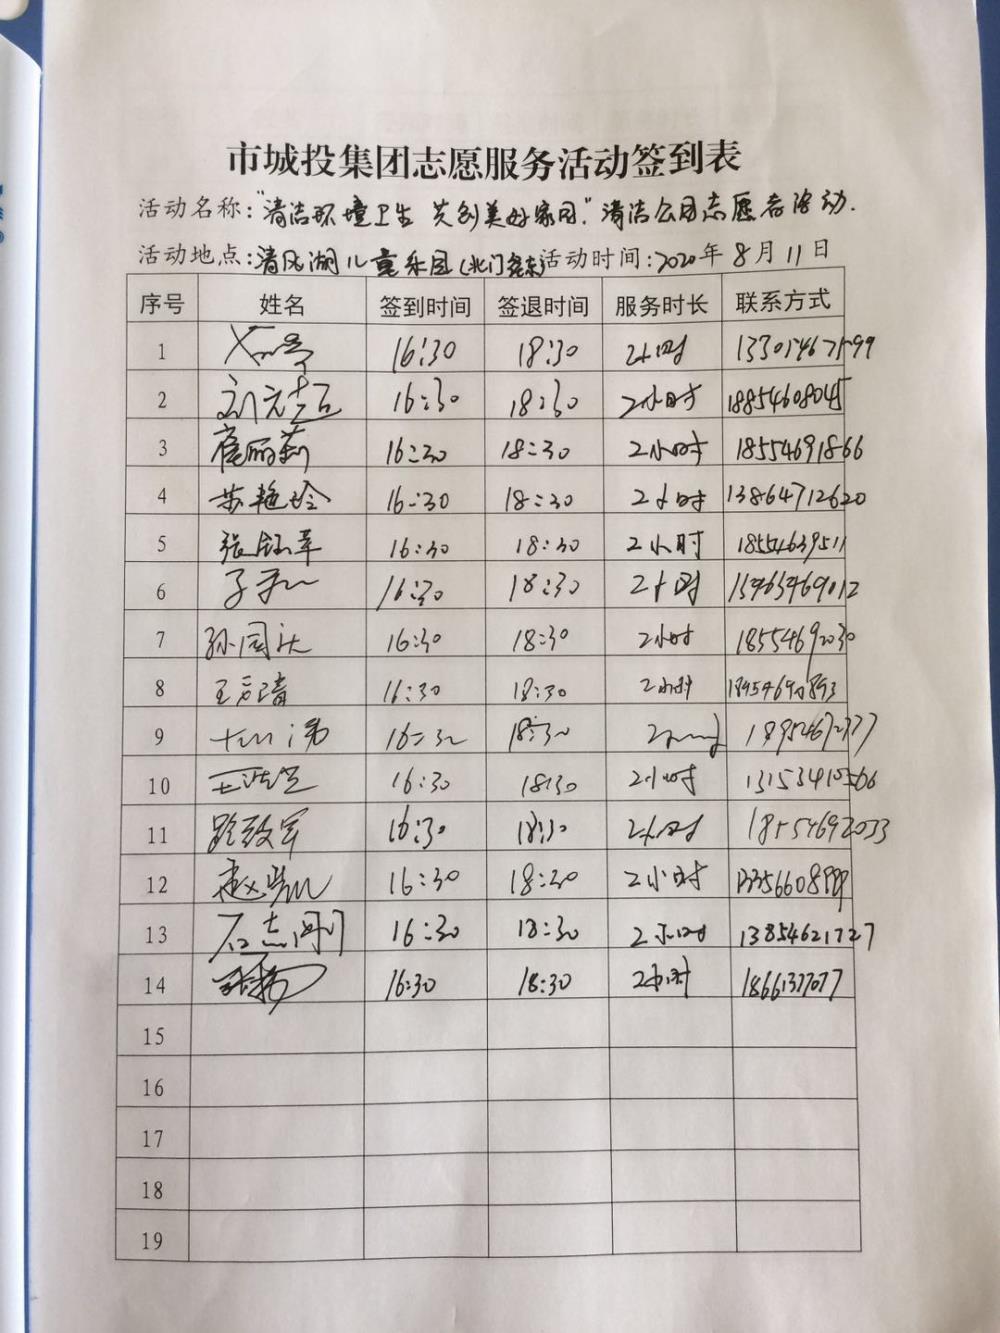 市城投集团志愿服务活动签到表
活动名称:"清洁环境卫生 共创美好家园."清洁公园志愿者活动.
活动地点:清风湖儿童乐园(北门东)活动时间:2020年8月11日
序号 姓名 签到时间 签退时间 服务时长 联系方式
1 16:30 18:30 2小时
2 刘元 16:30 18:30 2小时 18854608045
3 扈丽莉 16:30 18:30 2小时 18554691866
4 苏艳玲 16:30 18:30 2小时 13864712620
5 张钰苹 16:30 18:30 2小时 18554639511
6 16:30 18:30 2小时 15963969012
7 孙国庆 16:30 18:30 2小时 18554692030
8 16:30 18:30 2小时
9 16:30 18:30
10 16:30 1830 2小时
11 路致军 16:30 18:30 2小时 18554692033
12 赵 16:30 18:30 2小时
13 石志刚 16:30 18:30 2小时 13854621727
14 16:30 18:30 2小时
15
16
17
18
19